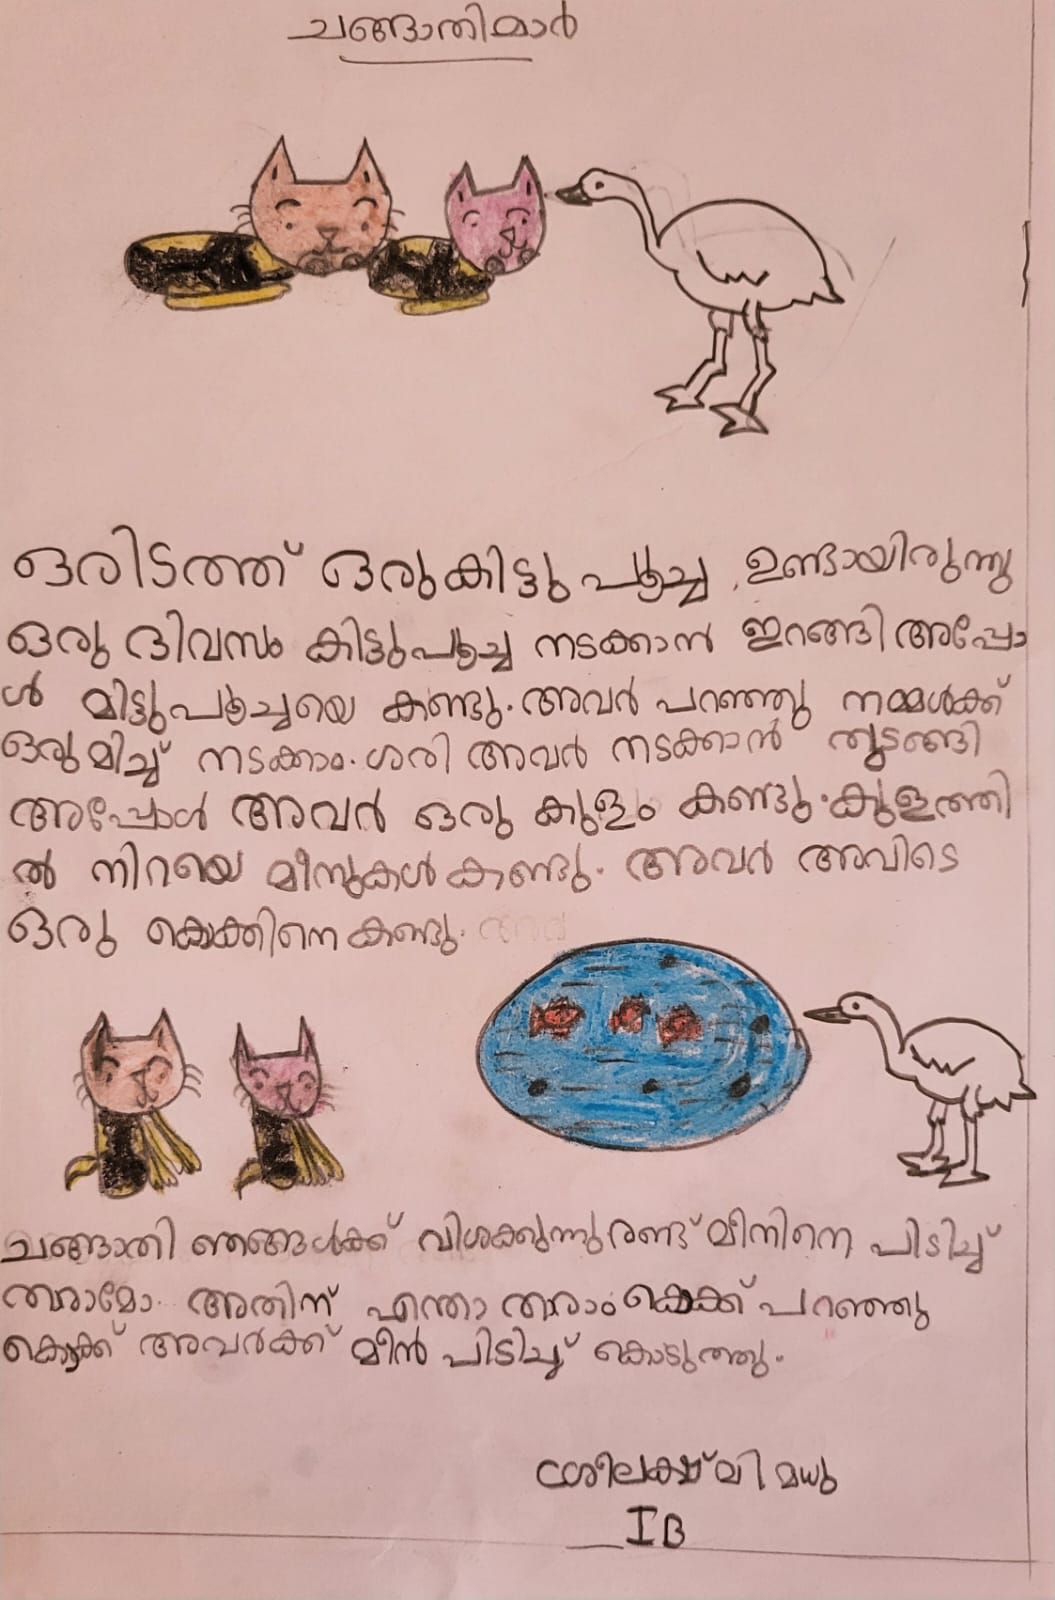 ചങ്ങാതിമാർ
ഒരിടത്ത് ഒരു കിട്ടു പൂച്ച ഉണ്ടായിരുന്നു
ഒരു ദിവസം കിട്ടുപൂച്ച നടക്കാൻ ഇറങ്ങി അപ്പോ
ൾ മിട്ടു പൂച്ചയെ കണ്ടു. അവർ പറഞ്ഞു നമ്മൾക്ക്
ഒരുമിച്ച് നടക്കാം. ശരി അവർ നടക്കാൻ തുടങ്ങി
അപ്പോൾ അവർ ഒരു കുളം കണ്ടു. കുളത്തി
ൽ നിറയെ മീനുകൾ കണ്ടു. അവർ അവിടെ
ഒരു കൊക്കിനെ കണ്ടു.
ചങ്ങാതി ഞങ്ങൾക്ക് വിശക്കുന്നു രണ്ട് മീനിനെ പിടിച്ച്
തരാമോ. അതിന് എന്താ തരാം കൊക്ക് പറഞ്ഞു
കൊക്ക് അവർക്ക് മീൻ പിടിച്ച് കൊടുത്തു.
മധു
I B